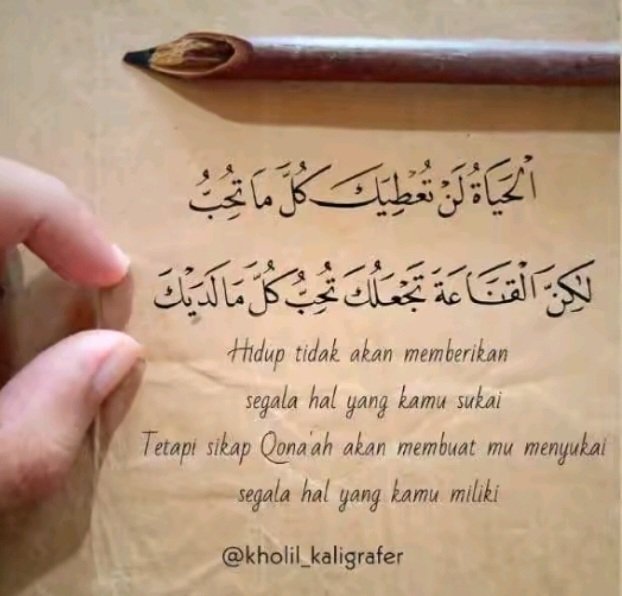 الْحَيَاةُ لَنْ تُعْطِيَكَ كُلَّ مَا تُحِبُّ
لٰكِنَّ الْقَنَاعَةَ تَجْعَلُكَ تُحِبُّ كُلَّ مَا لَدَيْكَ
Hidup tidak akan memberikan
segala hal yang kamu sukai
Tetapi sikap Qona'ah akan membuat mu menyukai
segala hal yang kamu miliki
@kholil_kaligrafer